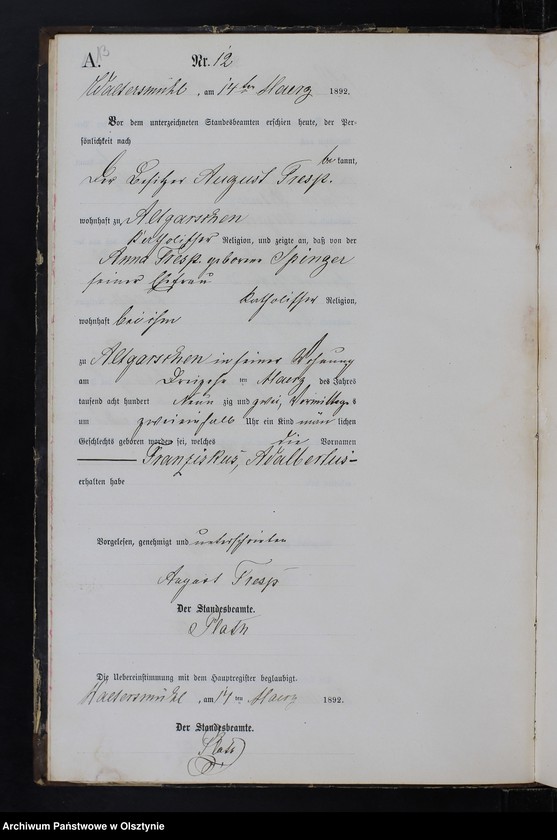 A. 13
Nr. 12
Waltersmühl, am 14ten Maerz 1892.
Vor dem unterzeichneten Standesbeamten erschien heute, der Per-
sönlichkeit nach
be kannt,
Der Besitzer August Tresp.
wohnhaft zu Altgarschen
katholischer Religion, und zeigte an, daß von der
Anna Tresp. geborene Spinger
seiner Ehefrau
katholischer Religion,
wohnhaft bei ihm
zu Altgarschen in seiner Wohnung
am Dreizehn ten Maerz des Jahres
tausend acht hundert Neun zig und zwei, Vormittags
um zweieinhalb Uhr ein Kind männlichen
Geschlechts geboren worden sei, welches die Vornamen
Franziskus, Adalbertus
erhalten habe
Vorgelesen, genehmigt und unterschrieben
August Tresp
Der Standesbeamte.
Plath
Die Uebereinstimmung mit dem Hauptregister beglaubigt.
Waltersmühl, am 14ten Maerz 1892.
Der Standesbeamte.
Plath
Archiwum Państwowe w Olsztynie